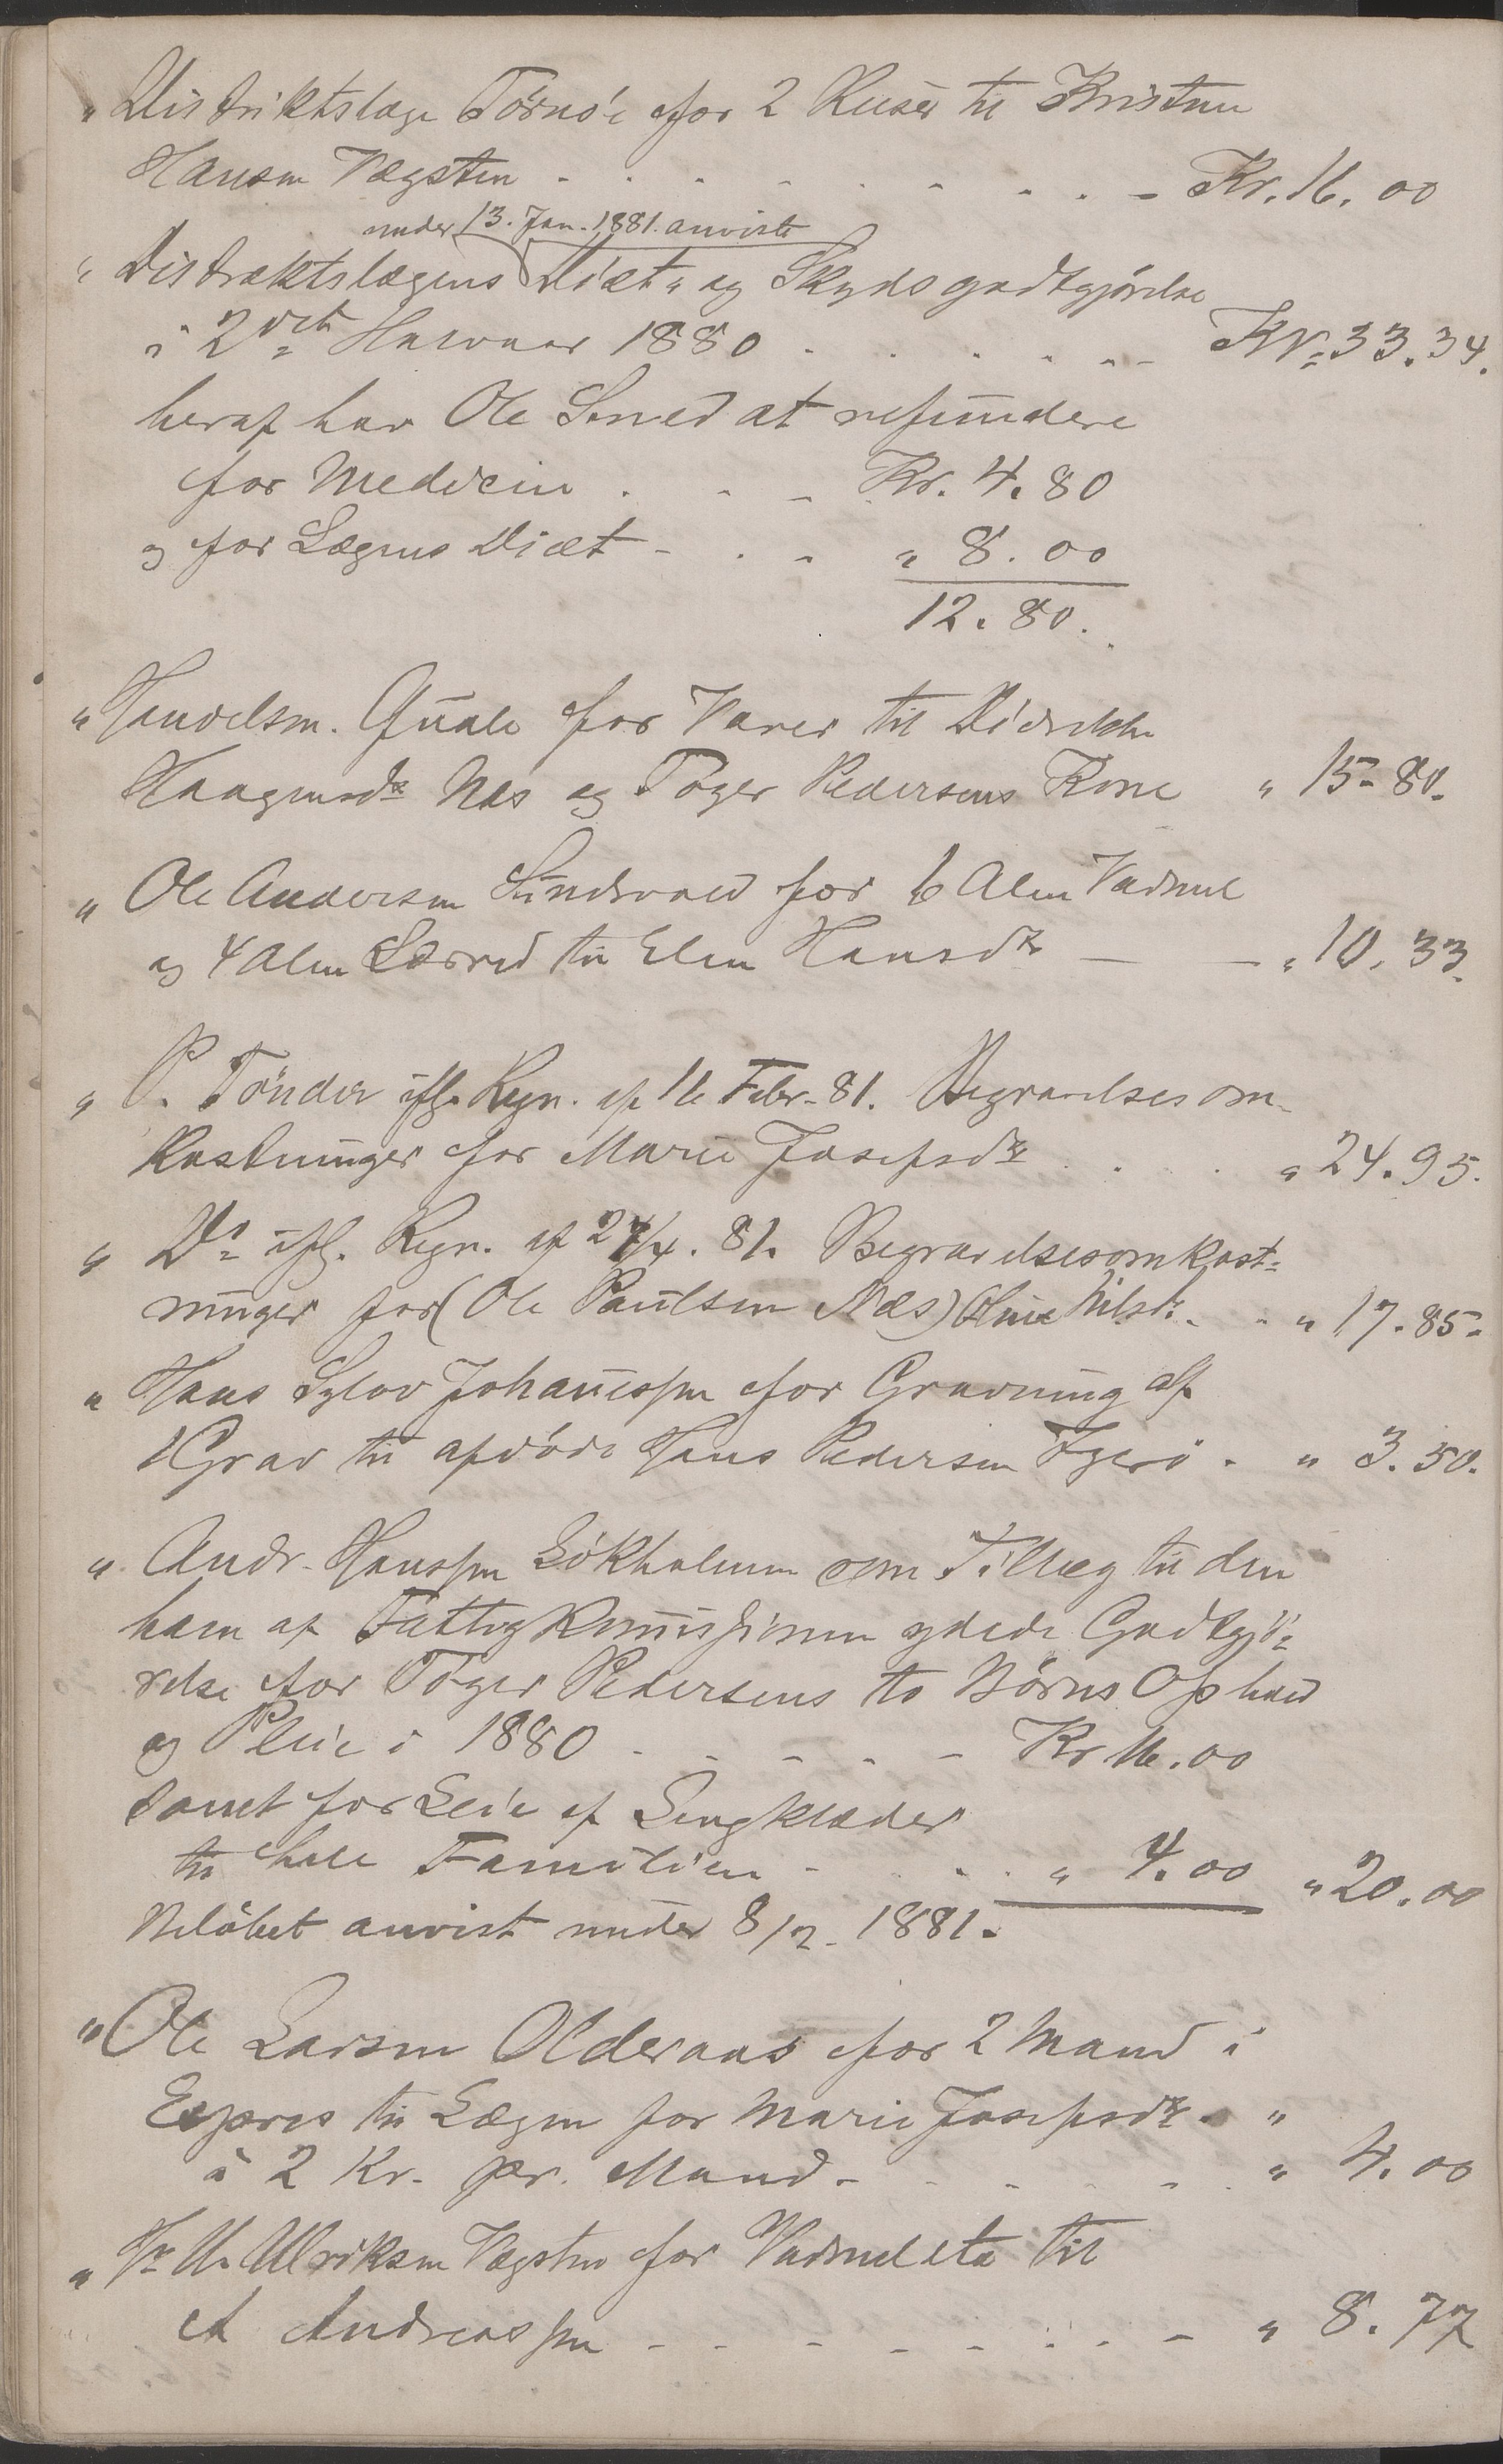 " Distriktslæge Törnöe for 2 Reiser til Kristen
Hansen Vægsten - - - - - - - - Kr. 16.00
under 13. Jan. 1881. anviste
" Distriktslægens Diæt " og Skydsgodtgjörelse
i 2det Halvaar 1880 - - - - - Kr. 33.34.
heraf har Ole Smed at refundere
for Medicin . - - Kr. 4.80
og for Lægens Diæt - . - " 8.00
12.80.
" Handelsm. Quale for Varer til Didrikke
Haagensdtr Næs og Töger Pedersens Kone " 15-80.
" Ole Andersen Sundsvold for 6 Alen Vadmel
og 4 Alen Lærred til Elen Hansdtr — — " 10.33.
" P. Tönder iflg. Regn. af 16 Febr. 81. Begravelsesom-
kostninger for Marie Josefsdtr . . . " 24.95.
" Do iflg. Regn. af 27/4. 81. Begravelsesomkost-
ninger for (Ole Paulsen Næs) Oline Nilsdtr. - " 17.85-
" Hans Sylov Johanessen for Gravning af
1 Grav til afdöde Hans Pedersen Igerö - " 3.50.
" Andr. Hanssen Lökholmen som Tillæg til den
ham af Fattigkomissionen ydede Godtgjö-
relse for Töger Pedersens to Börns Ophold
og Pleie i 1880 - - - - - Kr 16.00
samt for Leie af Sengklæder
til hele Familien - - . . " 4.00 " 20.00
Belöbet anvist under 8/2. 1881.
" Ole Larsen Olderaas for 2 Mand i
Expres til Lægen for Marie Josefsdtr. "
à 2 Kr. pr. Mand - - - - - " 4.00
" H. U. Ulriksen Vægsten for Vadmel etc til
A Andreassen - - - - - - - - " 8.77